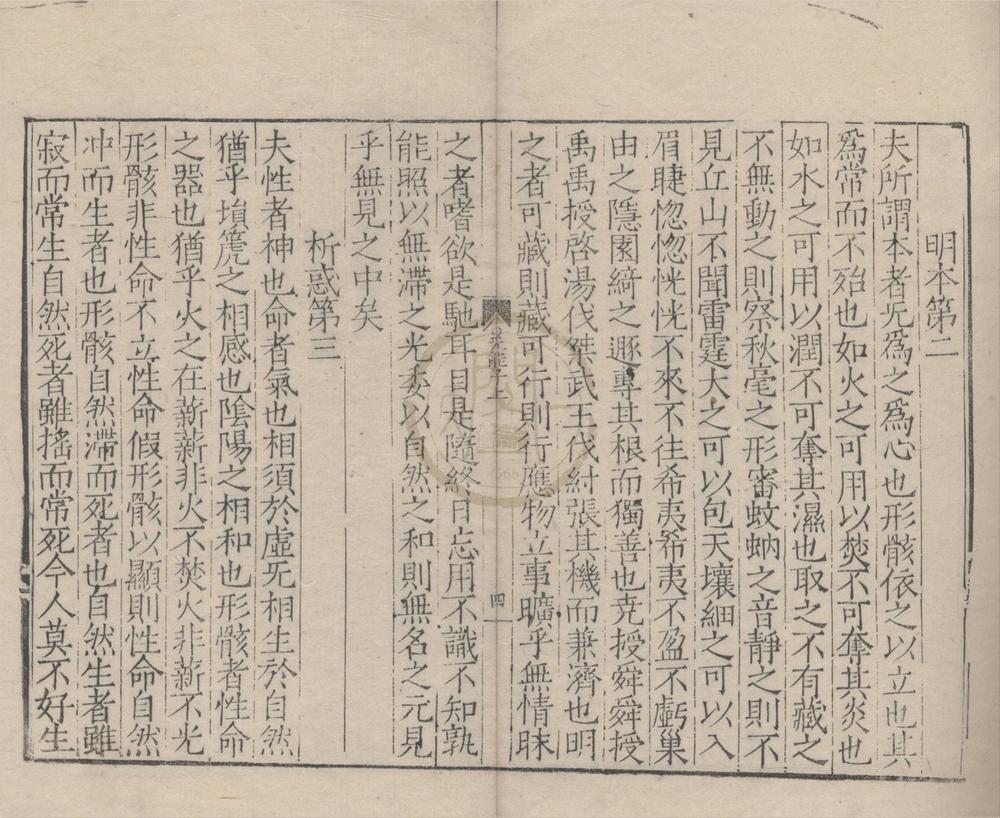 明本第二
夫所謂本者旡爲之爲心也形骸依之以立也其
爲常而不殆也如火之可用以焚不可奪其炎也
如水之可用以潤不可奪其濕也取之不有藏之
不無動之則察秋毫之形審蚊蚋之音靜之則不
見丘山不聞雷霆大之可以包天壤細之可以入
眉睫惚惚恍恍不來不往希夷希夷不盈不虧巢
由之隱園綺之遯專其根而獨善也尭授舜舜授
禹禹授啓湯伐桀武王伐紂張其機而兼濟也明
之者可藏則藏可行則行應物立事曠乎無情昧
四
之者嗜欲是馳耳目是隨終日忘用不識不知孰
能照以無滯之光委以自然之和則無名之元見
乎無見之中矣
析惑第三
夫性者神也命者氣也相須於虛旡相生於自然
猶乎塤箎之相感也陰陽之相和也形骸者性命
之器也猶乎火之在薪薪非火不焚火非薪不光
形骸非性命不立性命假形骸以顯則性命自然
冲而生者也形骸自然滯而死者也自然生者雖
寂而常生自然死者雖摇而常死今人莫不好生